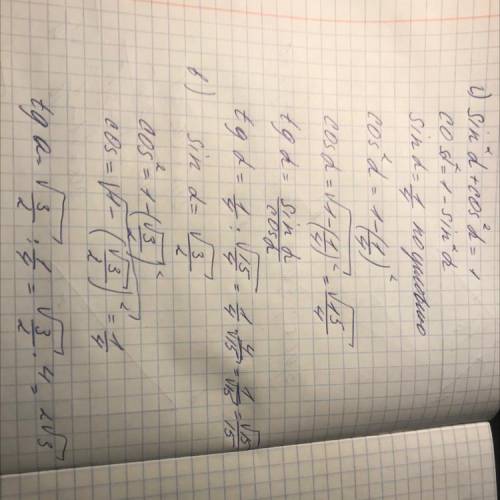 1) sin²α + cos²α = 1
cos² = 1 - sin²α
sin α = 1/4 по условию
cos²α = 1 - (1/4)²
cos α = √(1 - (1/4)²) = √15/4
tg α = sin α/cos α
tg α = 1/4 : √15/4 = 1/4 · 4/√15 = 1/√15 = √15/15
б) sin α = √3/2
cos² = 1 - (√3/2)²
cos = √(1 - (√3/2)²) = 1/4
tg α = √3/2 : 1/4 = √3/2 · 4 = 2√3